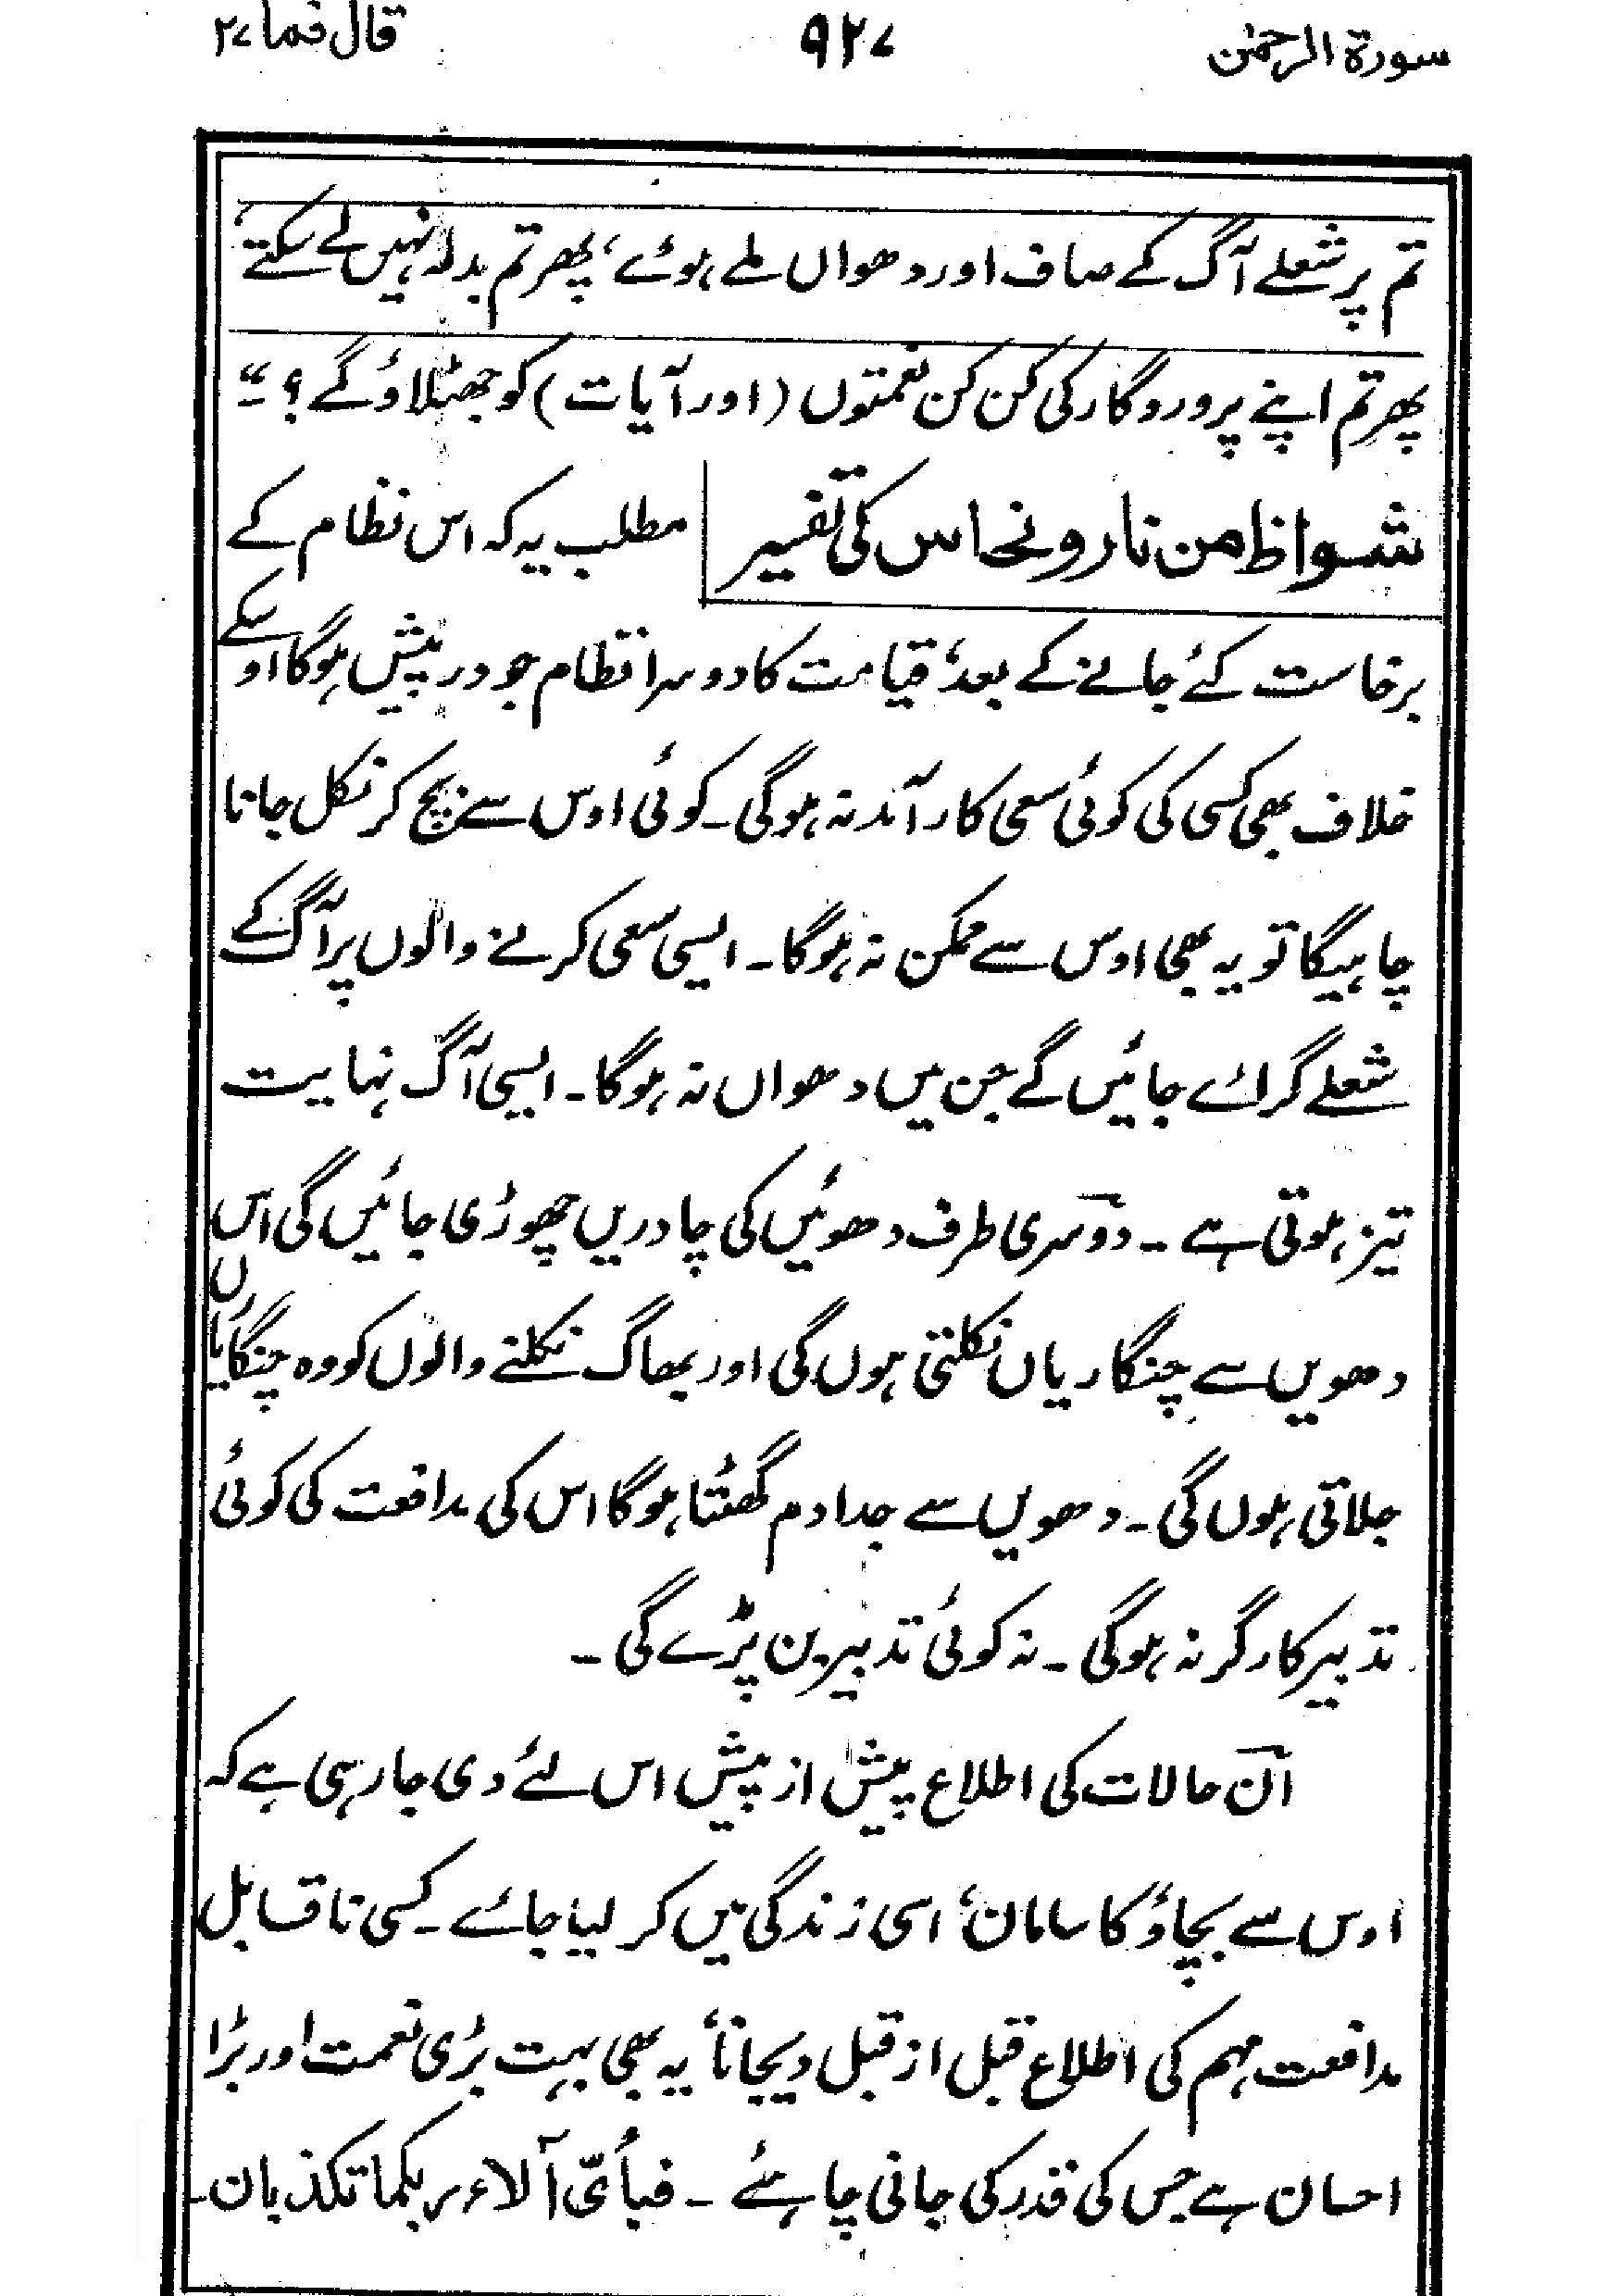 سورۃ الرحمٰن ۹۲۷ قال فما ۲۷
تم پر شعلے آگ کے صاف اور دھواں ملے ہوئے، پھر تم بدلہ نہیں لے سکتے،
پھر تم اپنے پروردگار کی کن کن نعمتوں (اور آیات) کو جھٹلاؤ گے؟"
شواظ من نار ونحاس کی تفسیر مطلب یہ کہ اس نظام کے
برخاست کئے جانے کے بعد، قیامت کا دوسرا نظام جو درپیش ہوگا اوسکے
خلاف بھی کسی کی کوئی سعی کار آمد نہ ہوگی۔ کوئی اوس سے بچ کر نکل جانا
چاہیگا تو یہ بھی اوس سے ممکن نہ ہوگا۔ ایسی سعی کرنے والوں پر آگ کے
شعلے گرائے جائیں گے جن میں دھواں نہ ہوگا۔ ایسی آگ نہایت
تیز ہوتی ہے۔ دوسری طرف دھوئیں کی چادریں چھوڑی جائیں گی اس
دھویں سے چنگاریاں نکلتی ہوں گی اور بھاگ نکلنے والوں کو وہ چنگایاں
جلاتی ہوں گی۔ دھویں سے جدا دم گھٹتا ہوگا اس کی مدافعت کی کوئی
تدبیر کارگر نہ ہوگی۔ نہ کوئی تدبیر بن پڑے گی۔
ان حالات کی اطلاع پیش از پیش اس لئے دی جا رہی ہے کہ
اوس سے بچاؤ کا سامان، اسی زندگی میں کر لیا جائے۔ کسی ناقابل
مدافعت مہم کی اطلاع قبل از قبل دیجانا، یہ بھی بہت بڑی نعمت اور بڑا
احسان ہے جس کی قدر کی جانی چاہئے۔ فبأیّ آلاء ربکما تکذبان۔